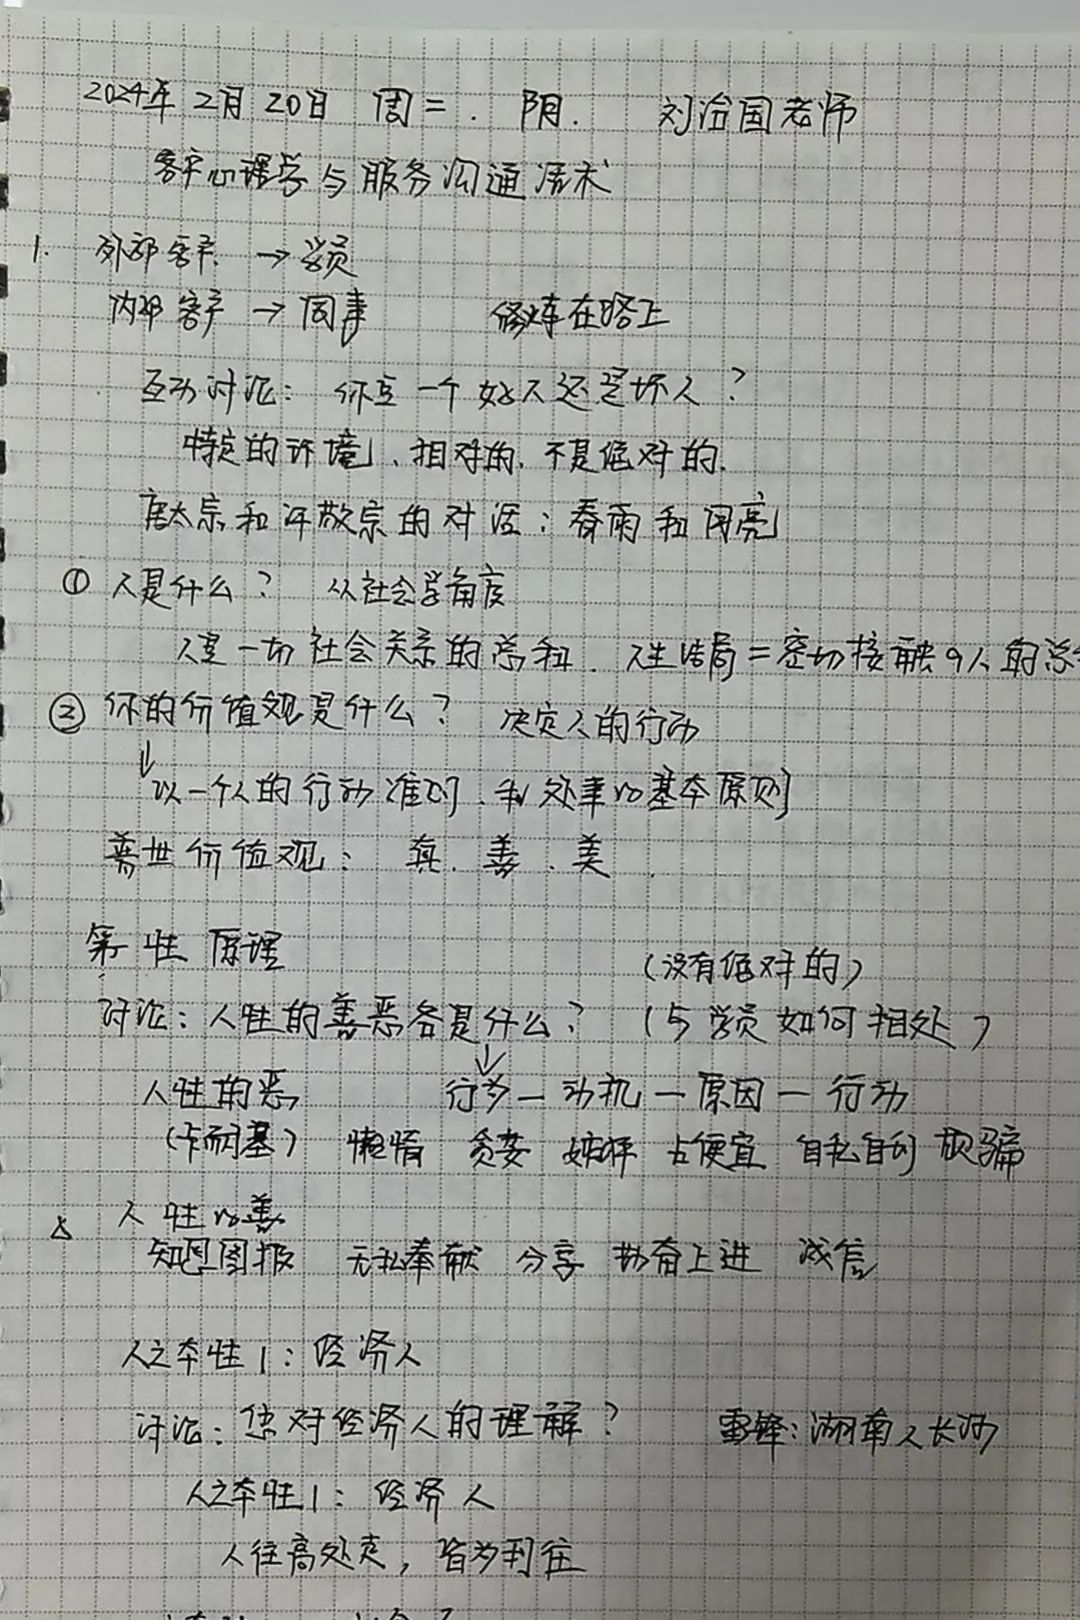 2024年2月20日 周二. 阴. 刘治国老师
客户心理学与服务沟通话术
1. 外部客户 → 学员
内部客户 → 同事 修炼在路上
互动讨论: 你是一个好人还是坏人?
特定的环境、相对的, 不是绝对的.
唐太宗和许敬宗的对话: 春雨和月亮
① 人是什么? 从社会学角度
人是一切社会关系的总和. 人生结局=密切接触9人的总
② 你的价值观是什么? 决定人的行动
↓
以一个人的行动准则、和处事的基本原则
普世价值观: 真、善、美
第 性原理
(没有绝对的)
讨论: 人性的善恶各是什么? (与学员如何相处)
↓
人性的恶 行为—动机—原因—行动
(卡耐基) 懒惰 贪婪 嫉妒 占便宜 自私自利 欺骗
人性的善
知恩图报 无私奉献 分享 勤奋上进 诚信
人之本性1: 经济人
讨论: 您对经济人的理解? 雷锋: 湖南人长沙
人之本性1: 经济人
人往高处走, 皆为利往